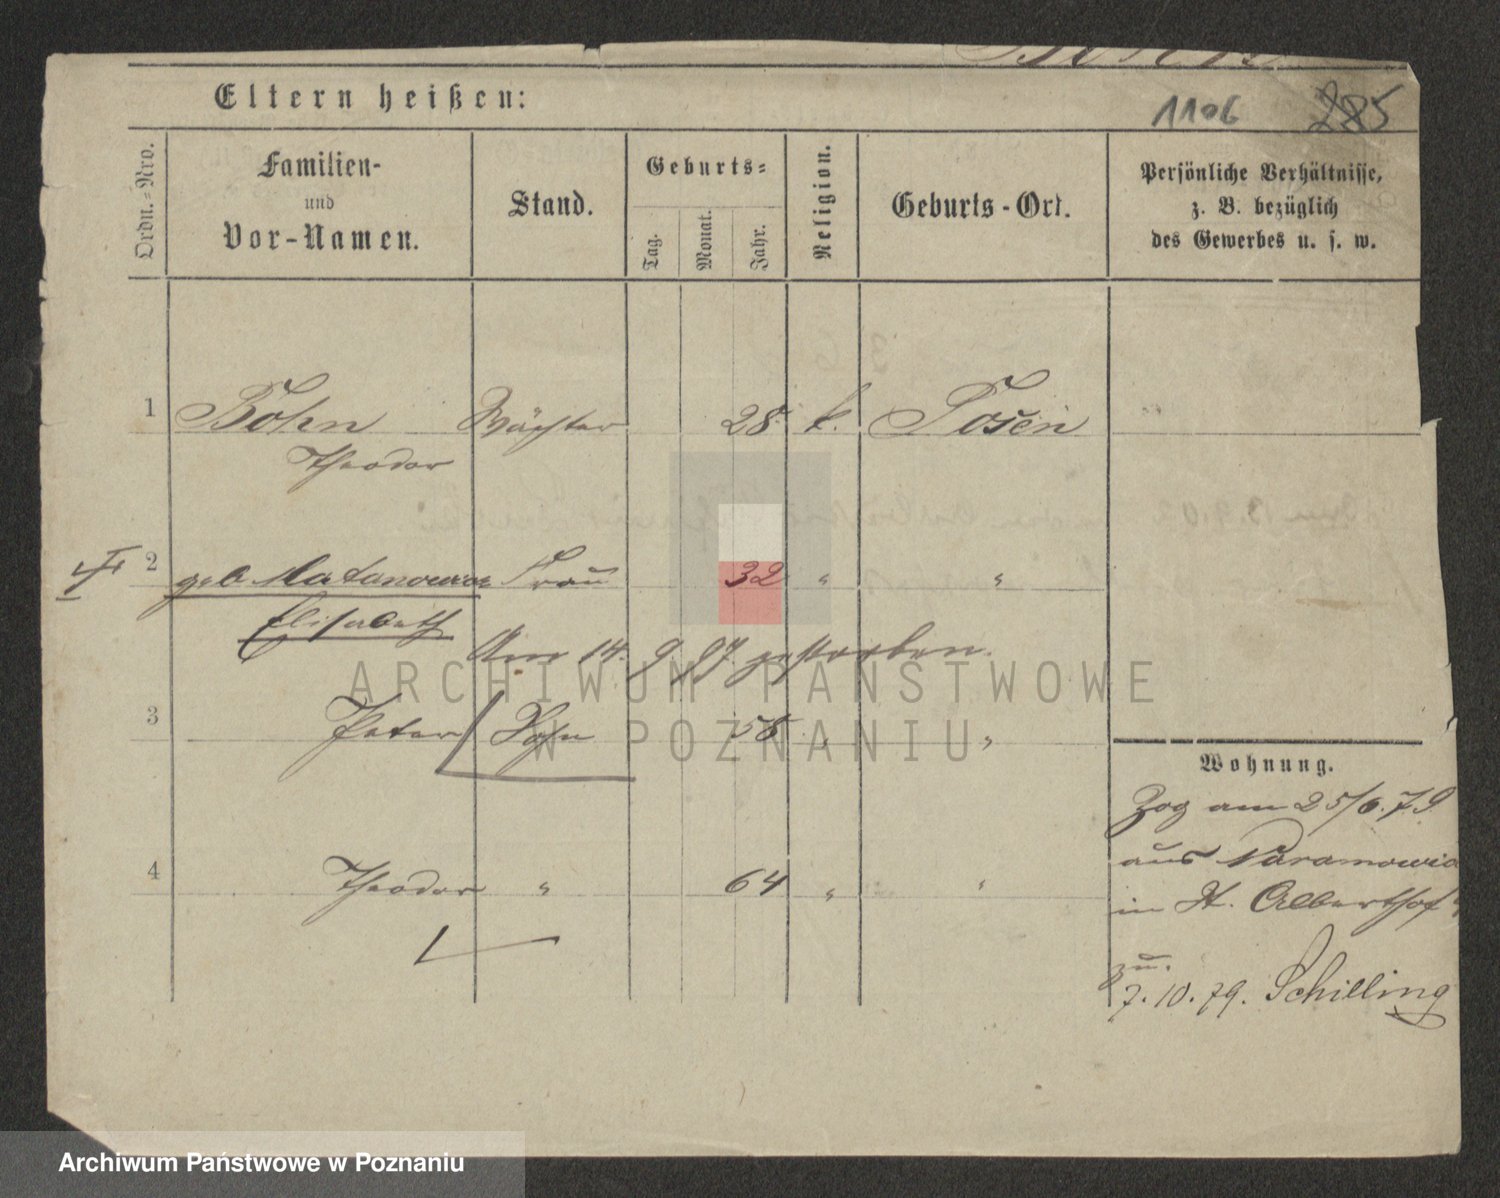 Eltern heißen:
1106 285
Ordn.-Nro.
Familien-
und
Vor-Namen.
Stand.
Geburts-
Tag.
Monat.
Jahr.
Religion.
Geburts-Ort.
Persönliche Verhältnisse,
z. B. bezüglich
des Gewerbes u. s. w.
1 Bohn Wächter 28 k. Posen
Theodor
2 geb. Matanowicz Frau 32 " "
Elisabeth
Am 14. 9 87 gestorben.
3 Peter Sohn 58 " "
4 Theodor " 64 " "
Wohnung.
Zog am 25/6.79
aus
in St. Alberthof
zu.
7.10.79. Schilling
ARCHIWUM PAŃSTWOWE
W POZNANIU
Archiwum Państwowe w Poznaniu